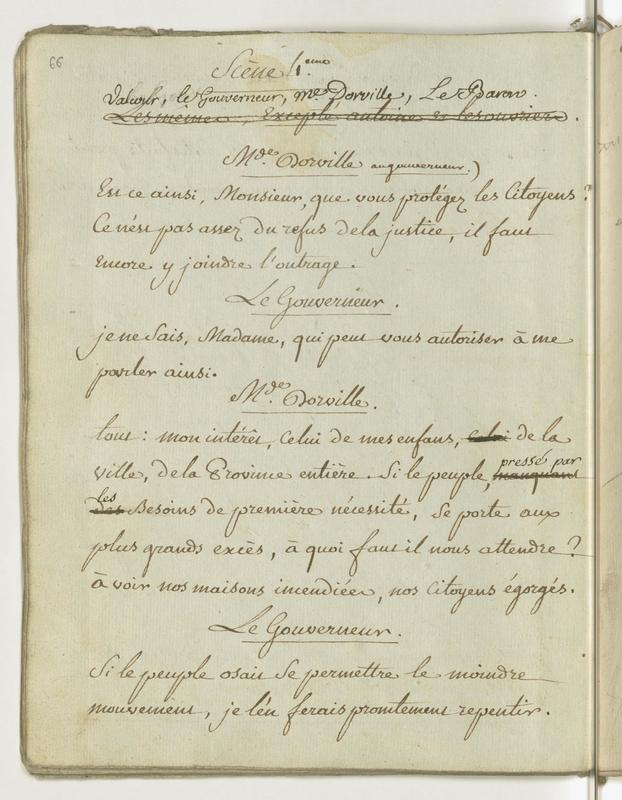 66
Scène 4eme.
Valcour, le Gouverneur, me Dorville, Le Baron.
Les meme, Excepté antoine et les ouvriers.
Mde. Dorville au gouverneur.)
Est ce ainsi, Monsieur, que vous protégez les Citoyens?
Ce n'est pas assez du refus de la justice, il faut
encore y joindre l'outrage.
Le Gouverneur.
je ne sais, Madame, qui peut vous autoriser à me
parler ainsi.
Mde. Dorville.
tout: mon intérêt, celui de mes enfans, celui de la
pressé par
ville, de la Province entière. Si le peuple, manquant
les
des Besoins de première nécessité, se porte aux
plus grands excès, à quoi faut il nous attendre?
à voir nos maisons incendiées, nos Citoyens égorgés.
Le Gouverneur.
Si le peuple osait se permettre le moindre
mouvement, je l'en ferais promtement repentir.